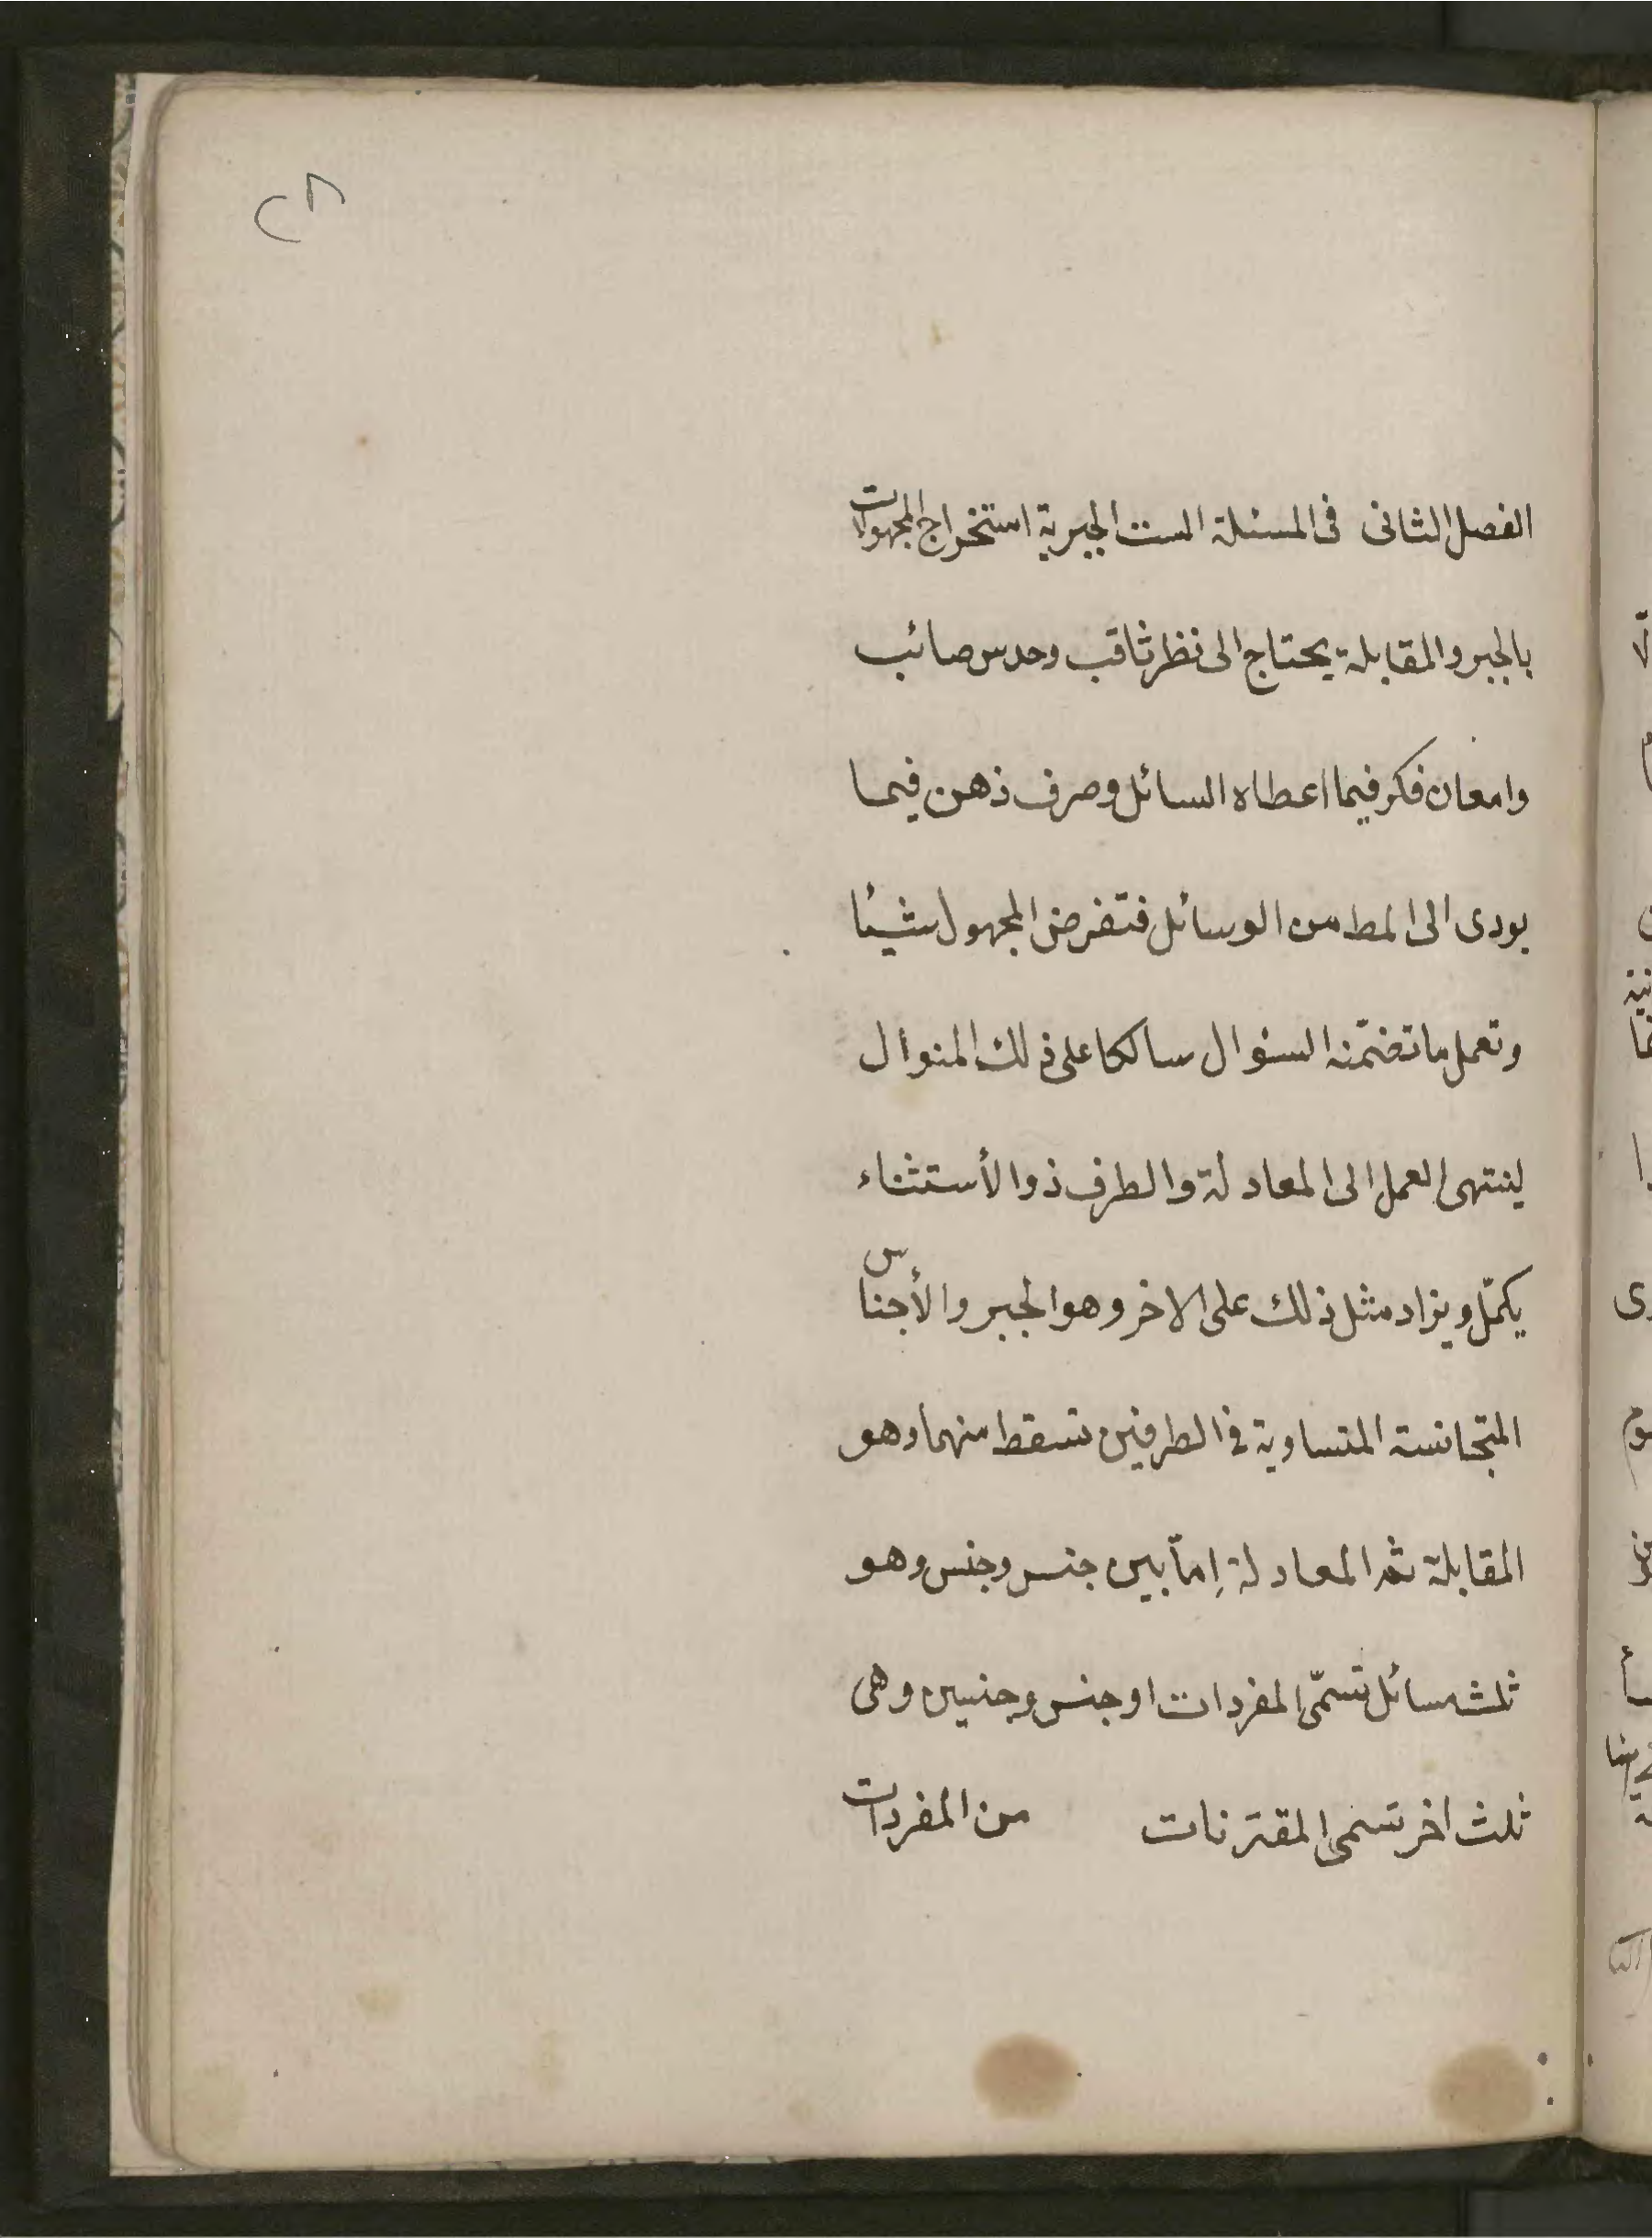 ٢٨
الفصل الثانى فى المسئلة الست الجبرية استخراج المجهولات
بالجبر والمقابلة يحتاج الى نظر ثاقب وحدس صائب
وامعان فكر فيما اعطاه السائل وصرف ذهن فيما
يودى الى المط من الوسائل فتفرض المجهول شيئا
وتعمل ما تضمّنه السئوال سالكا على ذلك المنوال
لينتهى العمل الى المعادلة والطرف ذوا الأستثناء
يكمّل ويزاد مثل ذلك على الاخر وهو الجبر والأجناس
المتجانسة المتساوية فى الطرفين تسقط منهما وهو
المقابلة ثم المعادلة إمّا بين جنس وجنس وهو
ثلث مسائل تسمّى المفردات او جنس وجنسين وهى
ثلث اخر تسمى المقترنات من المفردات